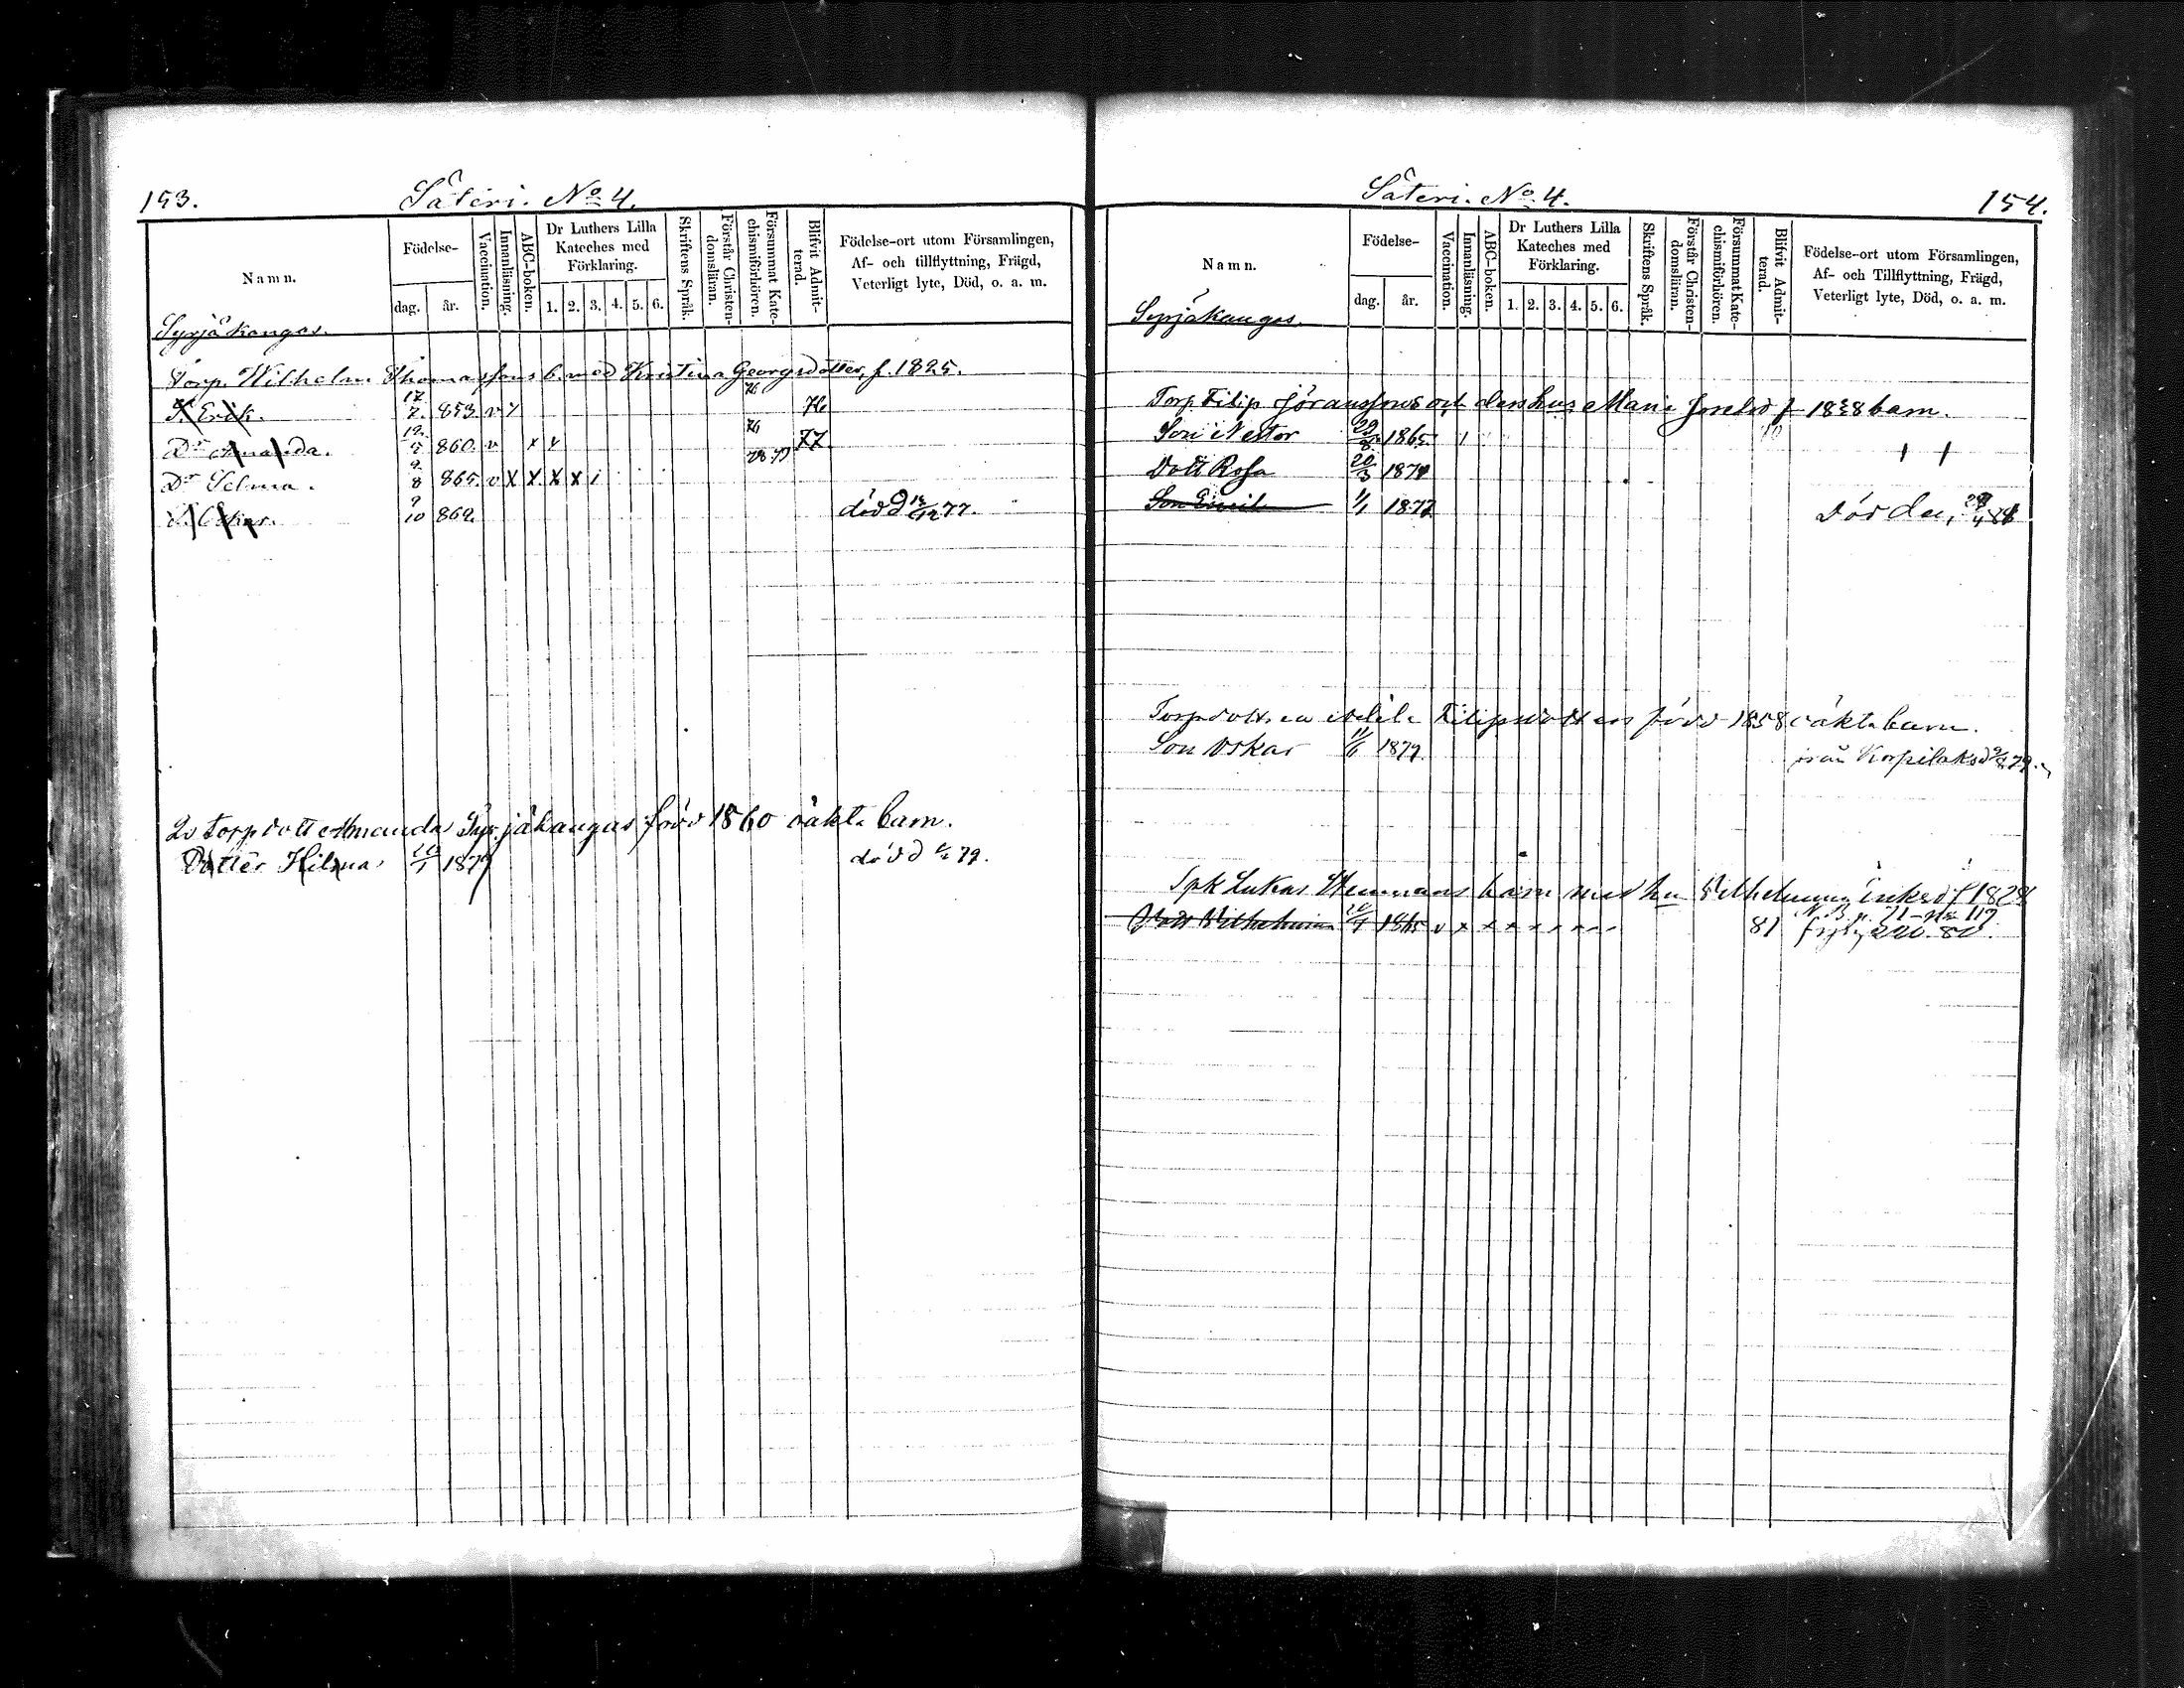 153.
Säteri. No 4.
Namn.
Födelse-
dag.
år.
Vaccination.
Innanläsning.
ABC-boken.
Dr Luthers Lilla Kateches med Förklaring.
1. 2. 3. 4. 5. 6.
Skriftens Språk.
Förstår Christendomsläran.
Försummat Katechismiförhören.
Blifvit Admitterad.
Födelse-ort utom Församlingen, Af- och tillflyttning, Frägd, Veterligt lyte, Död, o. a. m.
Syrjäkangas.
Torp. Wilhelm Thomassons b. med Kristina Georgsdotter, f. 1825.
S. Erik. 17/2 853 v 76 76
Dr Amanda. 12/5 860 v x x 76 77
Dr Selma. 2/8 865 v x x x x 78 79
S. Oskar. 9/10 862 död d 77.
2o Torpdott Amanda Syrjäkangas född 1860 oäkta barn.
Dotter Hilma 1879 död d 79.
Säteri. No 4.
154.
Namn.
Födelse-
dag.
år.
Vaccination.
Innanläsning.
ABC-boken.
Dr Luthers Lilla Kateches med Förklaring.
1. 2. 3. 4. 5. 6.
Skriftens Språk.
Förstår Christendomsläran.
Försummat Katechismiförhören.
Blifvit Admitterad.
Födelse-ort utom Församlingen, Af- och Tillflyttning, Frägd, Veterligt lyte, Död, o. a. m.
Syrjäkangas.
Torp. Filip Jöranssons och dess hus Maria f 1828 barn.
Son Nestor 29/8 1865
Dott Rosa 20/3 1871
Son Emil 1/1 1877
Torpdott:en Filipsdotters född 1858 oäkta barn.
Son Oskar 11/6 1879 från Korpilaks d 79.
Spk Lukas barn med hu Vilhelmina f 1828
Dott Vilhelmina 1865 v x x x x 81 N. B. p. 71